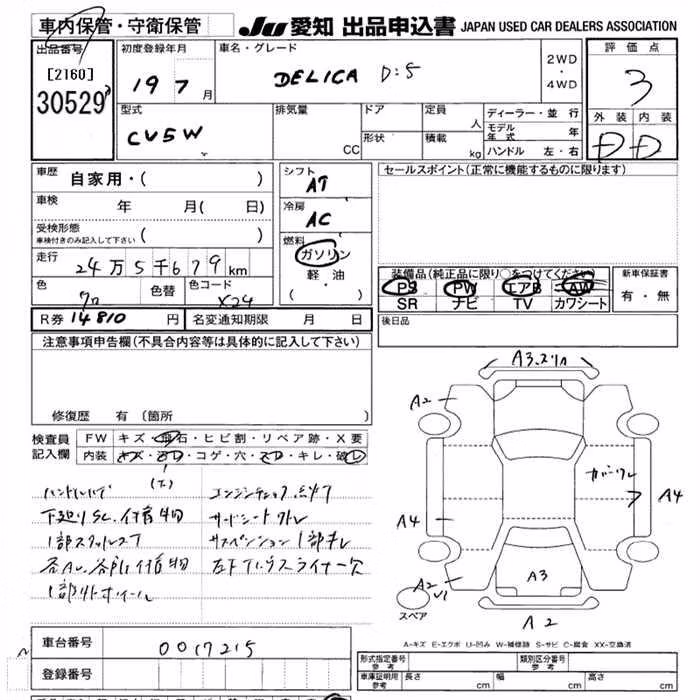 車内保管・守衛保管
JU 愛知 出品申込書 JAPAN USED CAR DEALERS ASSOCIATION
出品番号
[2160]
30529
初度登録年月
19 7 月
車名・グレード
DELICA D:5
2WD
・
4WD
評価点
3
外装 内装
D D
型式
CV5W
排気量
CC
ドア
形状
定員
人
積載
kg
ディーラー・並行
モデル年式 年
ハンドル 左・右
車歴
自家用・( )
車検 年 月( 日)
受検形態
車検付きのみ記入して下さい ( )
走行
24万5千679km
色
クロ
色替
色コード
X24
シフト
AT
冷房
AC
燃料
ガソリン
軽・油
( ・ )
セールスポイント(正常に機能するものに限ります)
装備品(純正品に限り○をつけてください)
PS PW エアB AW
SR ナビ TV カワシート
新車保証書
有・無
R券 14810 円
名変通知期限 月 日
後日品
注意事項申告欄(不具合内容等は具体的に記入して下さい)
修復歴 有(箇所
検査員記入欄
FW キズ・飛石・ヒビ割・リペア跡・X要
内装 キズ・汚レ・コゲ・穴・スレ・キレ・破レ
エンジンチェック点灯
下廻りSC.付着物
サードシート
サスペンション1部サレ
左下
A3.スリ
A2
カバーワレ
A4
A4
A3
A2
A2
スペア
A-キズ E-エクボ U-凹み W-補修跡 S-サビ C-腐食 XX-交換済
車台番号
0017215
登録番号
形式指定番号
参考
類別区分番号
参考
車庫証明用
参考
長さ cm
幅 cm
高さ cm